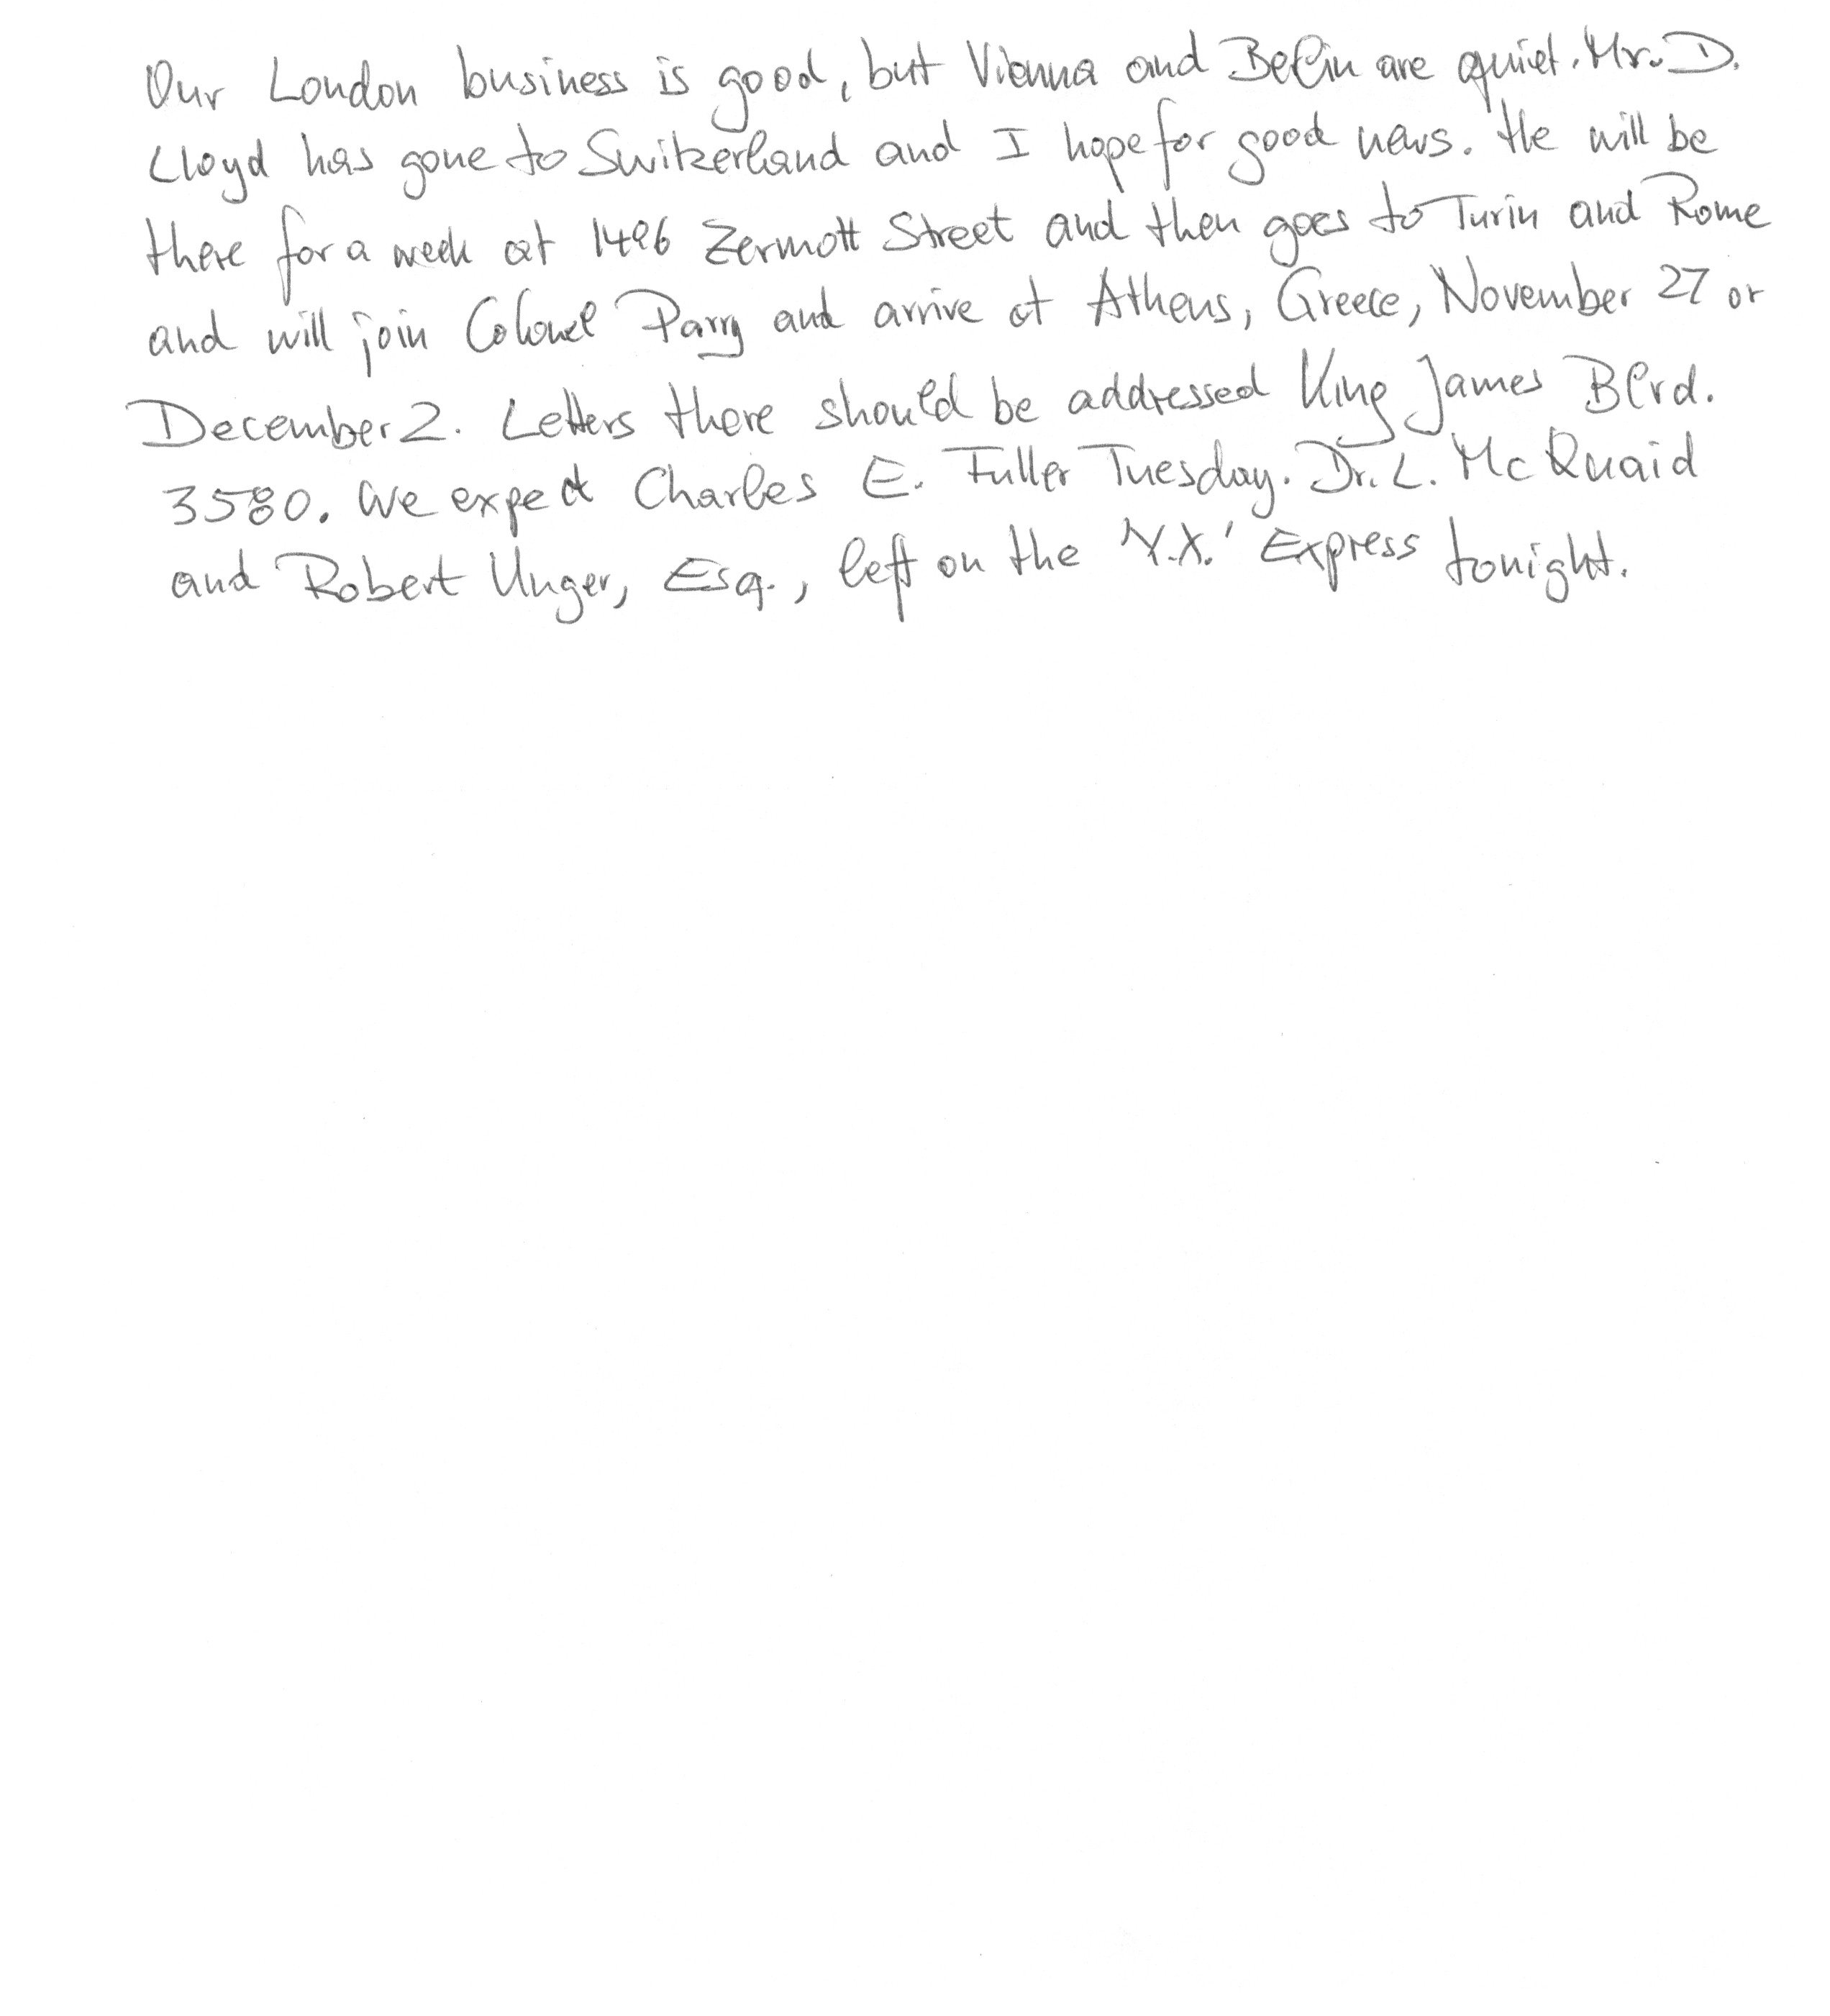 Our London business is good, but Vienna and Berlin are quiet. Mr. D.
Lloyd has gone to Switzerland and I hope for good news. He will be
there for a week at 1496 Zermott Street and then goes to Turin and Rome
and will join Colonel Parry and arrive at Athens, Greece, November 27 or
December 2. Letters there should be addressed King James Blvd.
3580. We expect Charles E. Fuller Tuesday. Dr. L. McQuaid
and Robert Unger, Esq., left on the 'Y.X.' Express tonight.